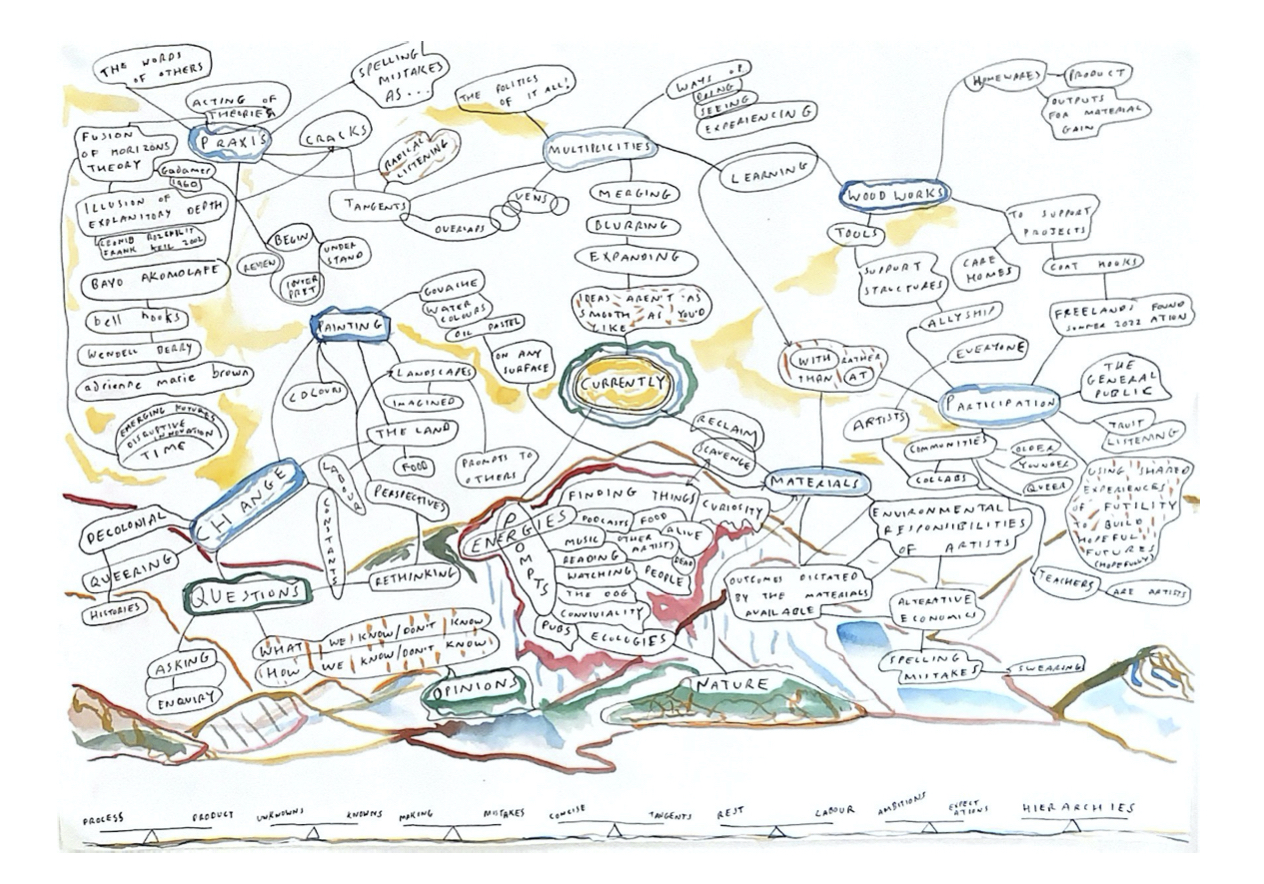 THE WORDS
OF OTHERS
SPELLING
MISTAKES
AS...
ACTING OF
THEORIES
PRAXIS
CRACKS
RADICAL
LISTENING
FUSION
OF HORIZONS
THEORY
Gadamer
1960
ILLUSION OF
EXPLANITORY DEPTH
FRANK KEIL 2002
BAYO AKOMOLAFE
bell hooks
WENDELL BERRY
adrienne marie brown
EMERGING FUTURES
DISRUPTIVE
INNOVATION
TIME
BEGIN
REVIEW
UNDER
STAND
INTER
PRET
TANGENTS
OVERLAPS
VENS
THE POLITICS
OF IT ALL!
MULTIPLICITIES
WAYS OF
BEING
SEEING
EXPERIENCING
LEARNING
MERGING
BLURRING
EXPANDING
IDEAS AREN'T AS
SMOOTH AS YOU'D
LIKE
CURRENTLY
HOMEWARES
PRODUCT
OUTPUTS
FOR MATERIAL
GAIN
WOOD WORKS
TOOLS
SUPPORT
STRUCTURES
TO SUPPORT
PROJECTS
CARE
HOMES
COAT HOOKS
FREELANDS FOUND
SUMMER 2022 ATION
ALLYSHIP
EVERYONE
WITH RATHER
THAN AT
PARTICIPATION
THE
GENERAL
PUBLIC
TRUST
LISTENING
ARTISTS
COMMUNITIES
OLDER
YOUNGER
QUEER
COLLABS
USING SHARED
EXPERIENCES
OF FUTILITY
TO BUILD
HOPEFUL
FUTURES
(HOPEFULLY)
TEACHERS
ARE ARTISTS
PAINTING
GOUACHE
WATER
COLOURS
OIL PASTEL
ON ANY
SURFACE
COLOURS
LANDSCAPES
IMAGINED
THE LAND
FOOD
PROMPTS TO
OTHERS
PERSPECTIVES
LABOUR
CONSTANTS
RETHINKING
CHANGE
DECOLONIAL
QUEERING
HISTORIES
QUESTIONS
ASKING
ENQUIRY
WHAT WE KNOW/DON'T KNOW
HOW WE KNOW/DON'T KNOW
OPINIONS
RECLAIM
SCAVENGE
MATERIALS
ENERGIES
PROMPTS
FINDING THINGS
CURIOSITY
PODCASTS
FOOD
MUSIC
OTHER
ARTISTS
ALIVE
DEAD
READING
WATCHING
PEOPLE
THE DOG
CONVIVIALITY
PUBS
ECOLOGIES
NATURE
ENVIRONMENTAL
RESPONSIBILITIES
OF ARTISTS
OUTCOMES DICTATED
BY THE MATERIALS
AVAILABLE
ALTERATIVE
ECONOMICS
SPELLING
MISTAKES
SWEARING
PROCESS PRODUCT UNKNOWNS KNOWNS MAKING MISTAKES CONCISE TANGENTS REST LABOUR AMBITIONS EXPECT
ATIONS HIERARCHIES